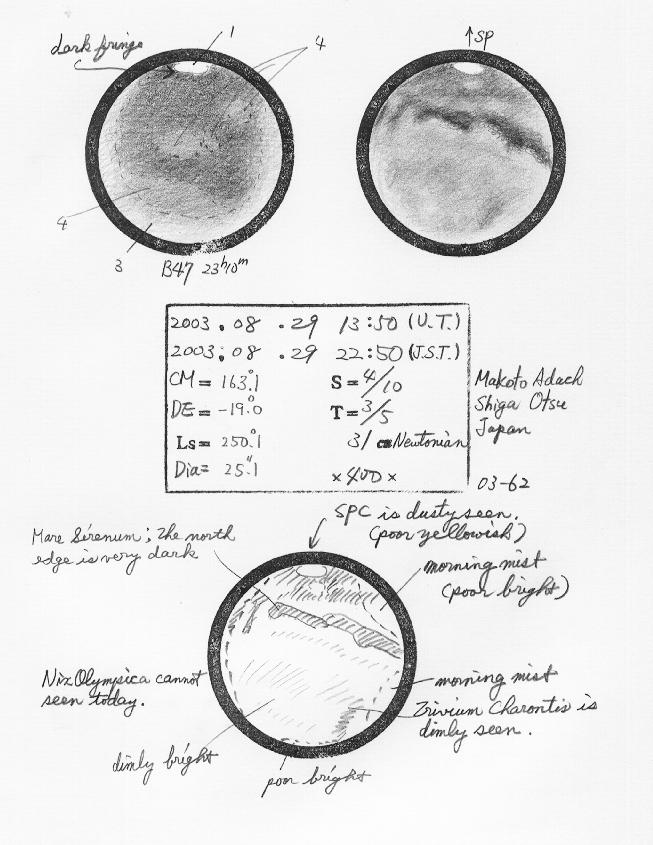 dark fringe
1
4
↑SP
4
3
B47 23h10m
2003.08.29 13:50 (U.T.)
2003;08.29 22:50 (J.S.T.)
CM= 163.°1 S=4/10
DE= -19.°0 T=3/5
Ls= 250.°1 31 cm Newtonian
Dia= 25."1 ×400×
Makoto Adach
Shiga Otsu
Japan
03-62
SPC is dusty seen.
(poor yellowish)
Mare Sirenum; the north
edge is very dark
morning mist
(poor bright)
Nix Olympica cannot
seen today.
morning mist
Trivium Charontis is
dimly seen.
dimly bright
poor bright